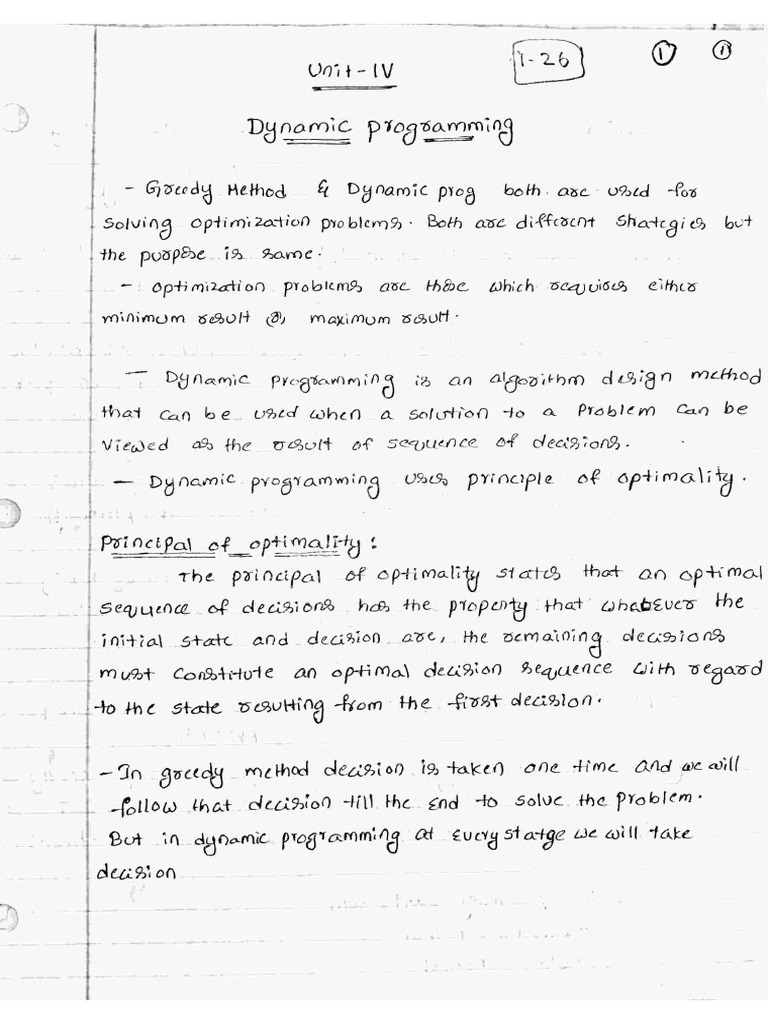 Unit-IV
1-26
1 1
Dynamic programming
- Greedy Method & Dynamic prog both are used for
solving optimization problems. Both are different strategies but
the purpose is same.
- optimization problems are those which requires either
minimum result or maximum result.
- Dynamic programming is an algorithm design method
that can be used when a solution to a Problem can be
viewed as the result of sequence of decisions.
- Dynamic programming uses principle of optimality.
Principal of optimality:
The principal of optimality states that an optimal
sequence of decisions has the property that whatever the
initial state and decision are, the remaining decisions
must constitute an optimal decision sequence with regard
to the state resulting from the first decision.
- In greedy method decision is taken one time and we will
follow that decision till the end to solve the problem.
But in dynamic programming at every statge we will take
decision